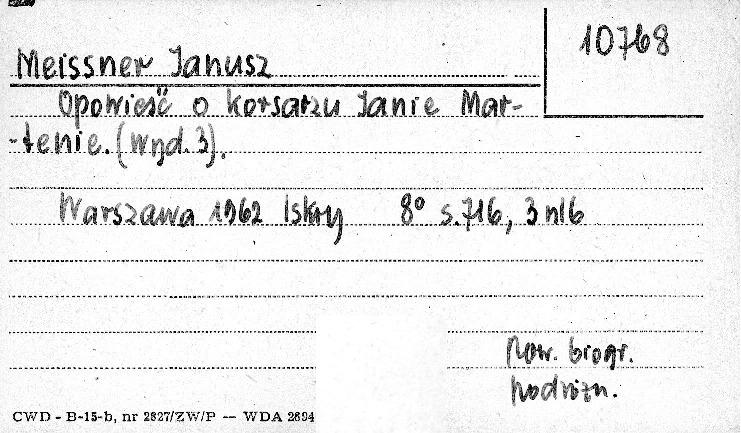 10768
Meissner Janusz
Opowieść o korsarzu Janie Mar-
-tenie. (Wyd. 3).
Warszawa 1962 Iskry 8° s. 716, 3 nlb
Pow. biogr.
podróżn.
CWD - B-15-b, nr 2827/ZW/P — WDA 2694